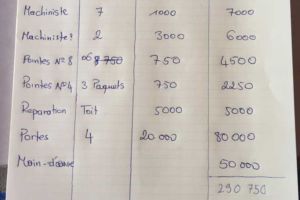 Machiniste 7 1000 7000
Machiniste 2 3000 6000
Pointes N° 8 06 750 4500
Pointes N° 4 3 Paquets 750 2250
Reparation Toit 5000 5000
Portes 4 20 000 80 000
Main-d'œuvre 50 000
290 750